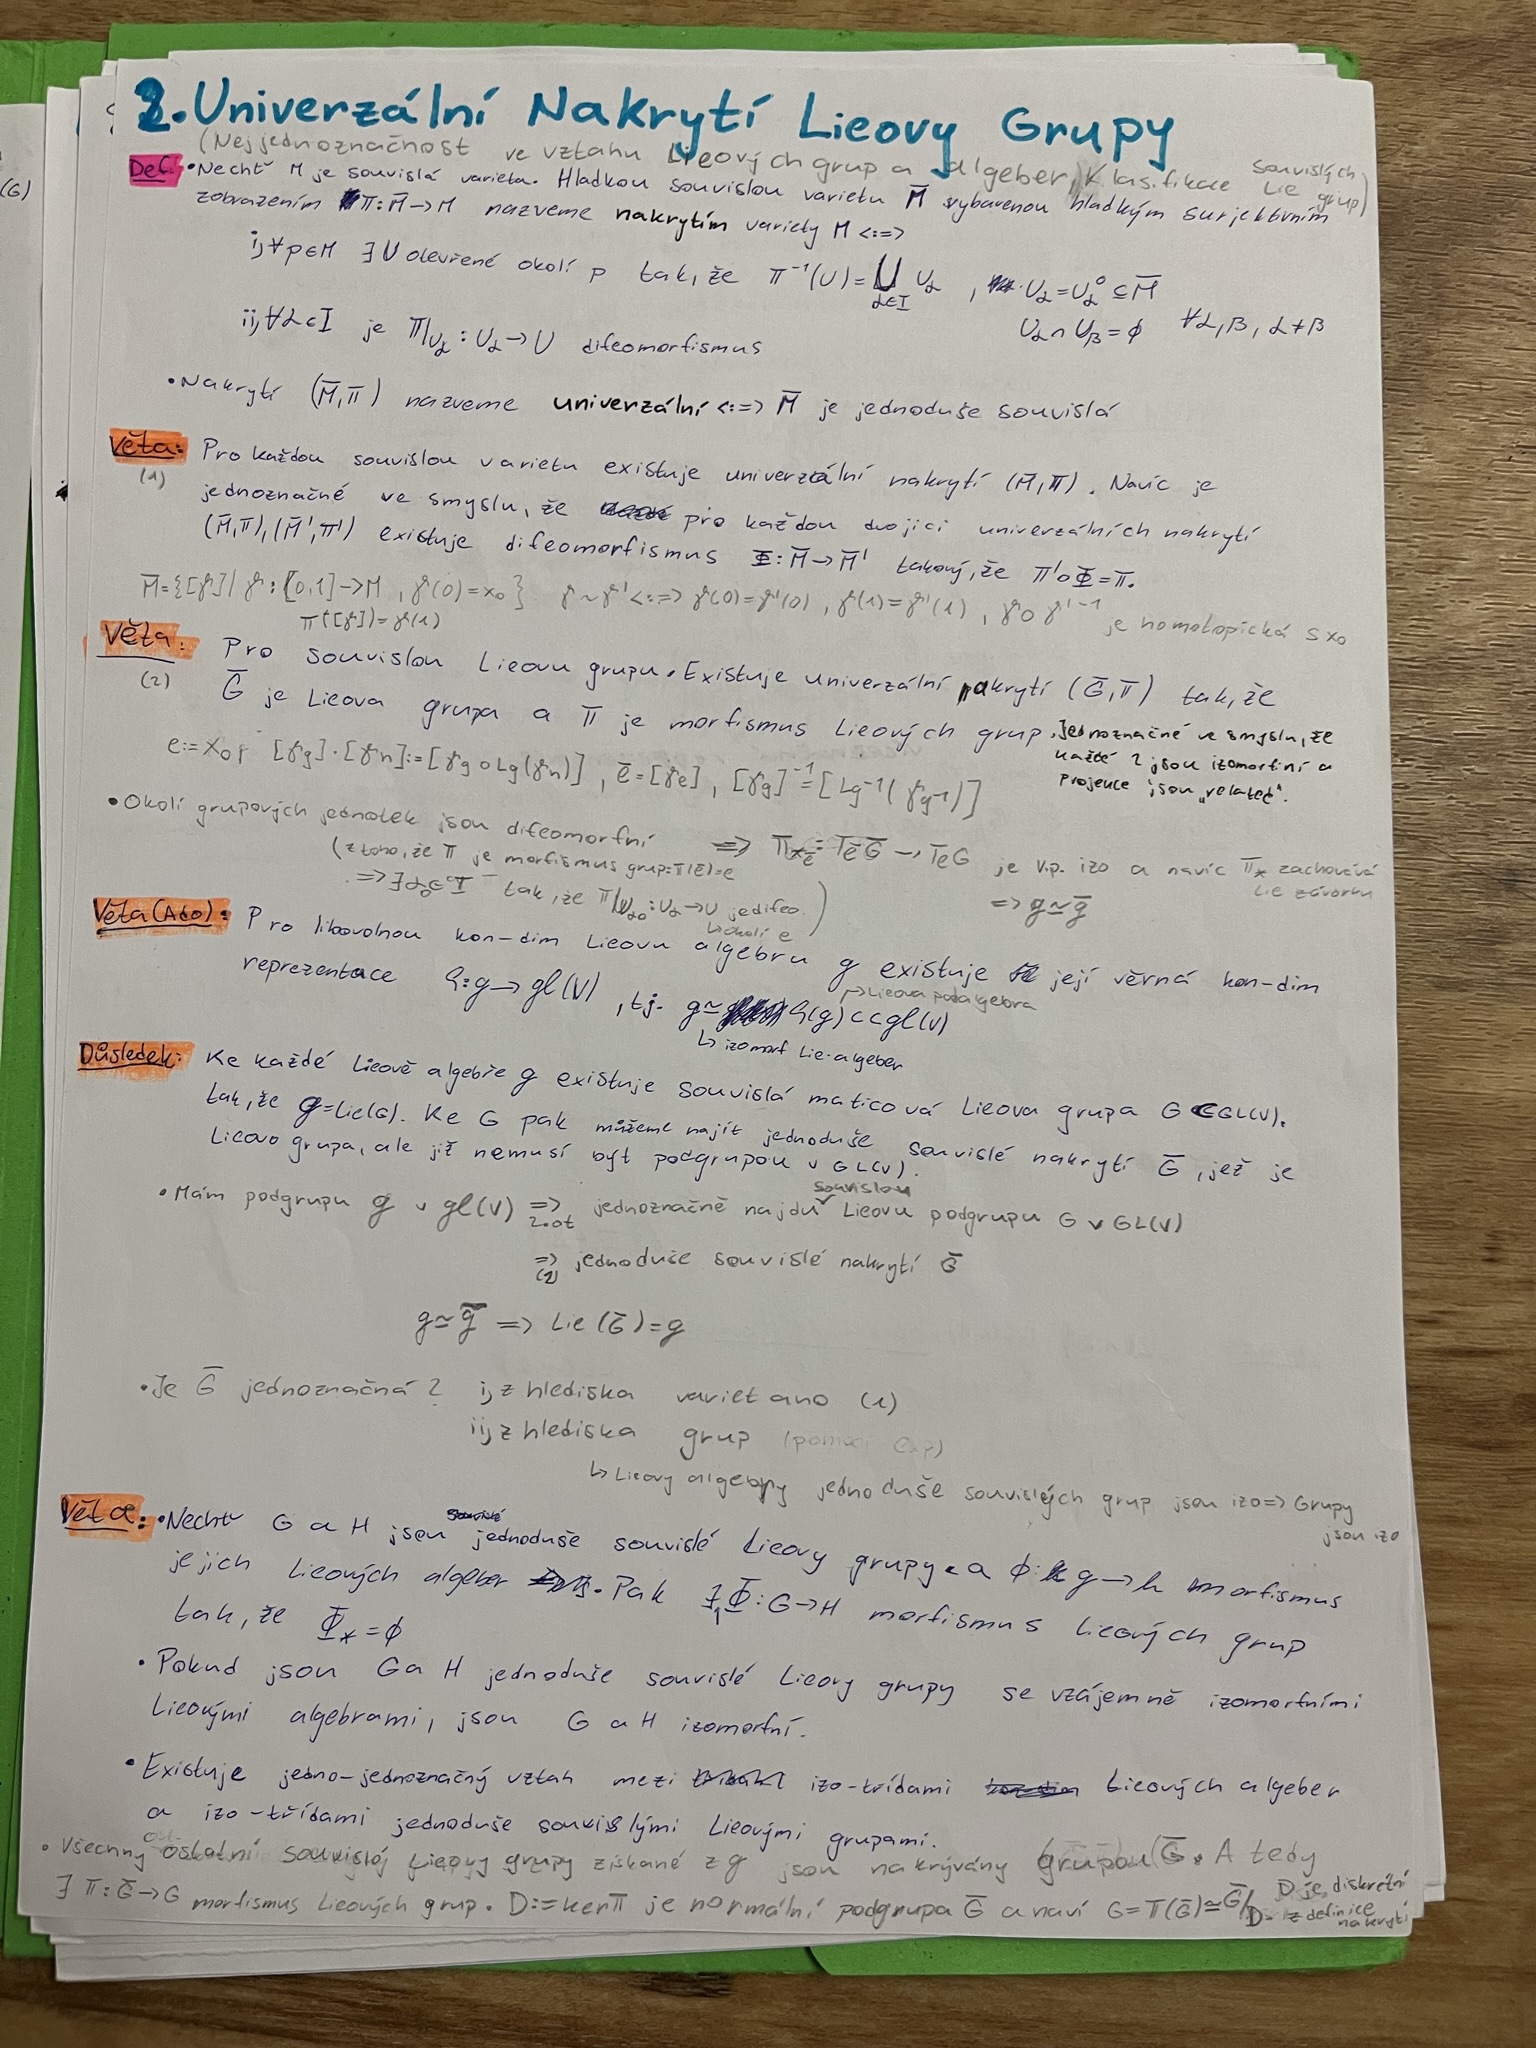 2. Univerzální Nakrytí Lieovy Grupy
(Nejjednoznačnost ve vztahu Lieových grup a algeber, Klasifikace souvislých Lie grup)
Def: • Nechť M je souvislá varieta. Hladkou souvislou varietu M̄ vybavenou hladkým surjektivním
zobrazením π: M̄→M nazveme nakrytím variety M <:=>
i, ∀p∈M ∃U otevřené okolí p tak, že π⁻¹(U)=⋃_{α∈I} U_α , U_α=U_α⁰⊆M̄
U_α∩U_β=∅ ∀α,β, α≠β
ii, ∀α∈I je π|_{U_α}: U_α→U difeomorfismus
• Nakrytí (M̄,π) nazveme univerzální <:=> M̄ je jednoduše souvislá
Věta: Pro každou souvislou varietu existuje univerzální nakrytí (M̄,π). Navíc je
(1) jednoznačné ve smyslu, že pro každou dvojici univerzálních nakrytí
(M̄,π),(M̄',π') existuje difeomorfismus Φ: M̄→M̄' takový, že π'∘Φ=π.
M̄={[γ]| γ:[0,1]→M , γ(0)=x₀} γ~γ' <:=> γ(0)=γ'(0), γ(1)=γ'(1), γ∘γ'⁻¹ je homotopická s x₀
π([γ])=γ(1)
Věta: Pro souvislou Lieovu grupu. Existuje univerzální nakrytí (Ḡ,π) tak, že
(2) Ḡ je Lieova grupa a π je morfismus Lieových grup. Jednoznačné ve smyslu, že
každé 2 jsou izomorfní a
projekce jsou „related".
e:=x₀, [γg]·[γh]:=[γg∘Lg(γh)], ē=[γe], [γg]⁻¹=[Lg⁻¹(γg⁻¹)]
• Okolí grupových jednotek jsou difeomorfní => π_{*ē}: T_ēḠ→T_eG je v.p. izo a navíc π_* zachovává
Lie závorku
(z toho, že π je morfismus grup: π(ē)=e
=> ∃α₀∈I tak, že π|_{U_{α₀}}: U_α→U je difeo.) => g≃ḡ
↳okolí e
Věta (Ado): Pro libovolnou kon-dim Lieovu algebru g existuje její věrná kon-dim
reprezentace ρ: g→gl(V), tj. g≃ρ(g)⊂⊂gl(V)
↱Lieova podalgebra
↳ izomorf Lie-algeber
Důsledek: Ke každé Lieově algebře g existuje souvislá maticová Lieova grupa G⊂GL(V).
tak, že g=Lie(G). Ke G pak můžeme najít jednoduše souvislé nakrytí Ḡ, jež je
Lieovo grupa, ale již nemusí být podgrupou v GL(V).
• Mám podgrupu g v gl(V) => jednoznačně najdu souvislou Lieovu podgrupu G v GL(V)
2.ot
=> jednoduše souvislé nakrytí Ḡ
(2)
g≃ḡ => Lie(Ḡ)=g
• Je Ḡ jednoznačná? i, z hlediska variet ano (1)
ii, z hlediska grup (pomocí exp)
↳ Lieovy algebry jednoduše souvislých grup jsou izo=> Grupy
jsou izo
Věta: • Nechť G a H jsou jednoduše souvislé Lieovy grupy. a φ: g→h morfismus
jejich Lieových algeber. Pak ∃₁Φ: G→H morfismus Lieových grup
tak, že Φ_*=φ
• Pokud jsou G a H jednoduše souvislé Lieovy grupy se vzájemně izomorfními
Lieovými algebrami, jsou G a H izomorfní.
• Existuje jedno-jednoznačný vztah mezi izo-třídami Lieových algeber
a izo-třídami jednoduše souvislými Lieovými grupami.
• Všechny ostatní souvislé Lieovy grupy získané z g jsou nakrývány grupou Ḡ. A tedy
∃ π: Ḡ→G morfismus Lieových grup. D:=ker π je normální podgrupa Ḡ a naví G=π(Ḡ)≃Ḡ/D
D je diskrétní
z definice
nakrytí